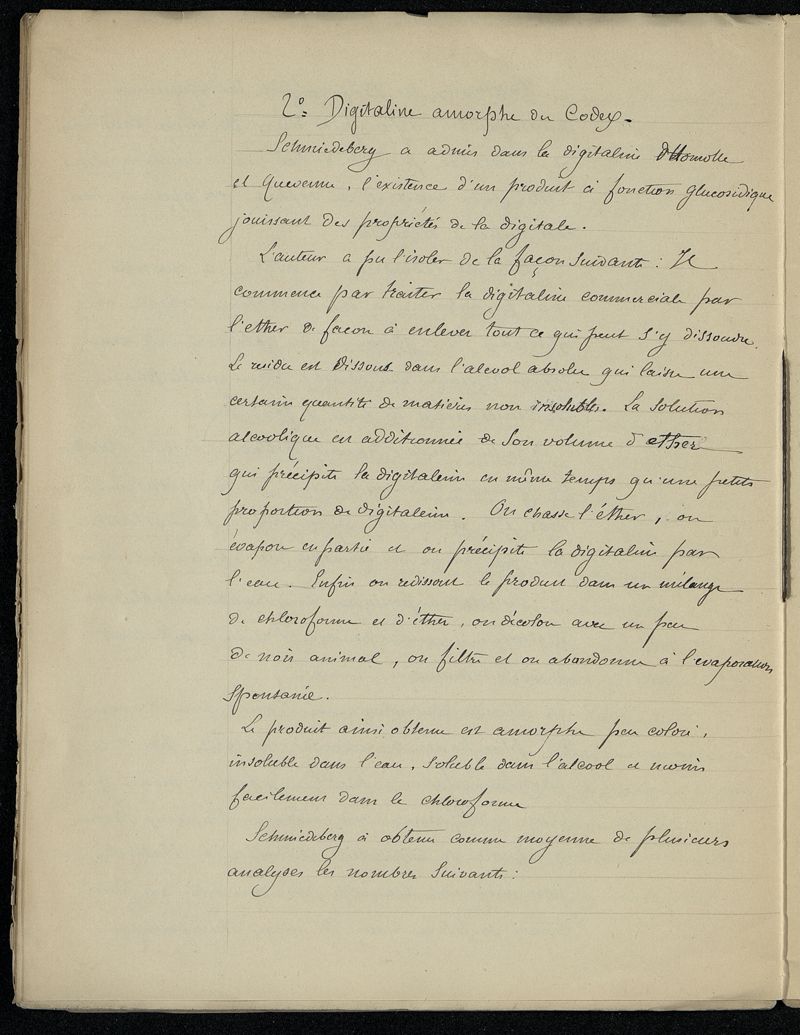 2º= Digitaline amorphe du Codex.
Schmiedeberg a admis dans la digitaline d'Homolle
et Quevenne, l'existence d'un produit à fonction glucosidique
jouissant des propriétés de la digitale.
L'auteur a pu l'isoler de la façon suivante : Il
commence par traiter la digitaline commerciale par
l'ether de façon à enlever tout ce qui peut s'y dissoudre.
Le residu est dissous dans l'alcool absolu qui laisse une
certaine quantité de matières non insolubles. La solution
alcoolique est additionnée de son volume d'ether
qui précipite la digitaleine en même temps qu'une petite
proportion de digitaleine. On chasse l'éther, on
évapore en partie et on précipite la digitaline par
l'eau. Enfin on redissout le produit dans un mélange
de chloroforme et d'éther, on décolore avec un peu
de noir animal, on filtre et on abandonne à l'evaporation
spontanée.
Le produit ainsi obtenu est amorphe peu coloré,
insoluble dans l'eau, soluble dans l'alcool et moins
facilement dans le chloroforme
Schmiedeberg a obtenu comme moyenne de plusieurs
analyses les nombres suivants :